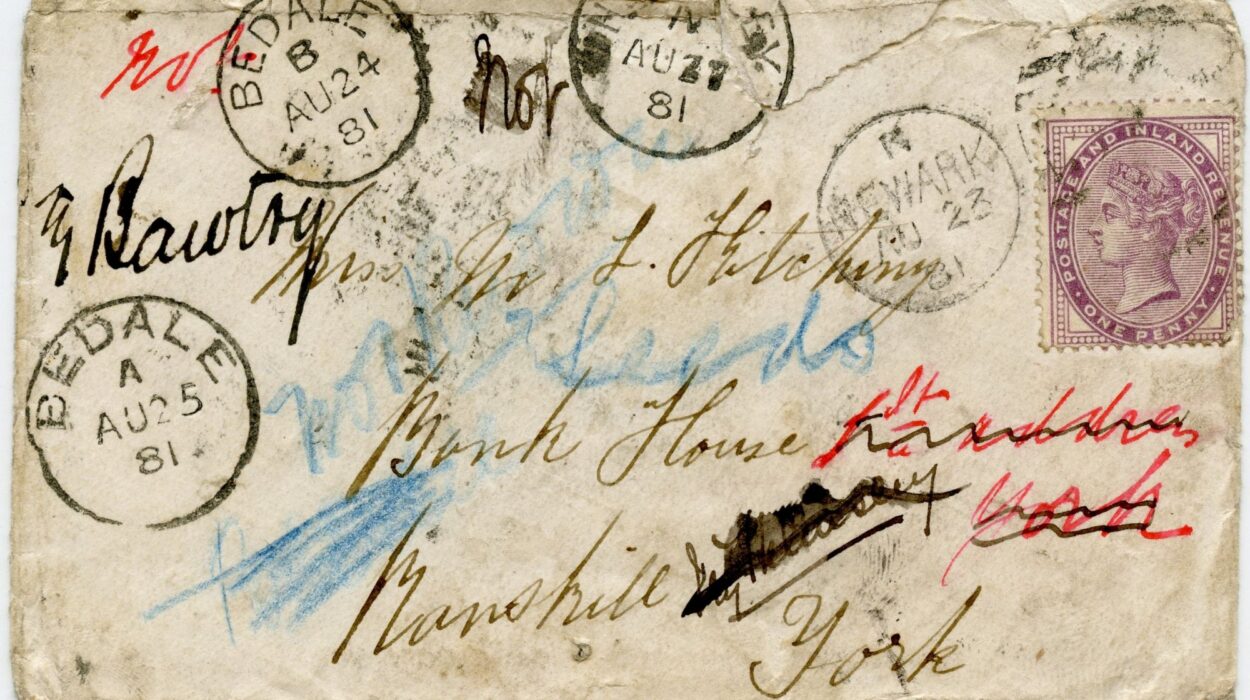 Not
BEDALE
B
AU 24
81
Not
AU 27
81
N
NEWARK
AU 23
81
POSTAGE AND INLAND REVENUE
ONE PENNY
Try Bawtry
Miss M. L. Kitching
Not
Leeds
BEDALE
A
AU 25
81
Bank House
1st address
York
Ranskill
York